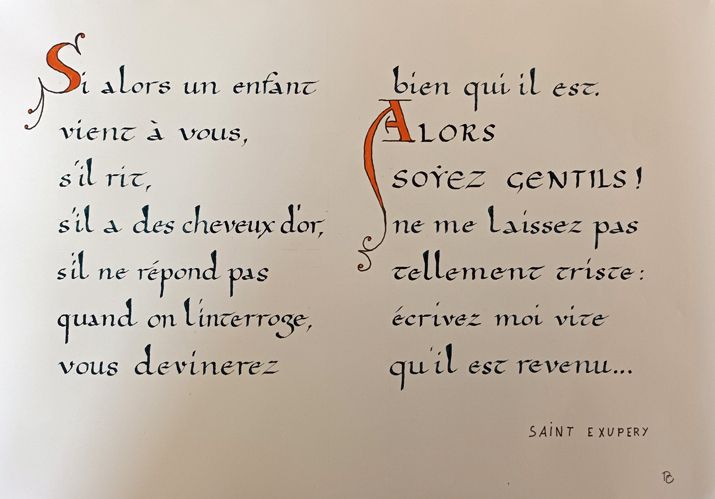 Si alors un enfant
vient à vous,
s'il rit,
s'il a des cheveux d'or,
s'il ne répond pas
quand on l'interroge,
vous devinerez
bien qui il est.
ALORS
SOYEZ GENTILS !
ne me laissez pas
tellement triste :
écrivez moi vite
qu'il est revenu...
SAINT EXUPERY